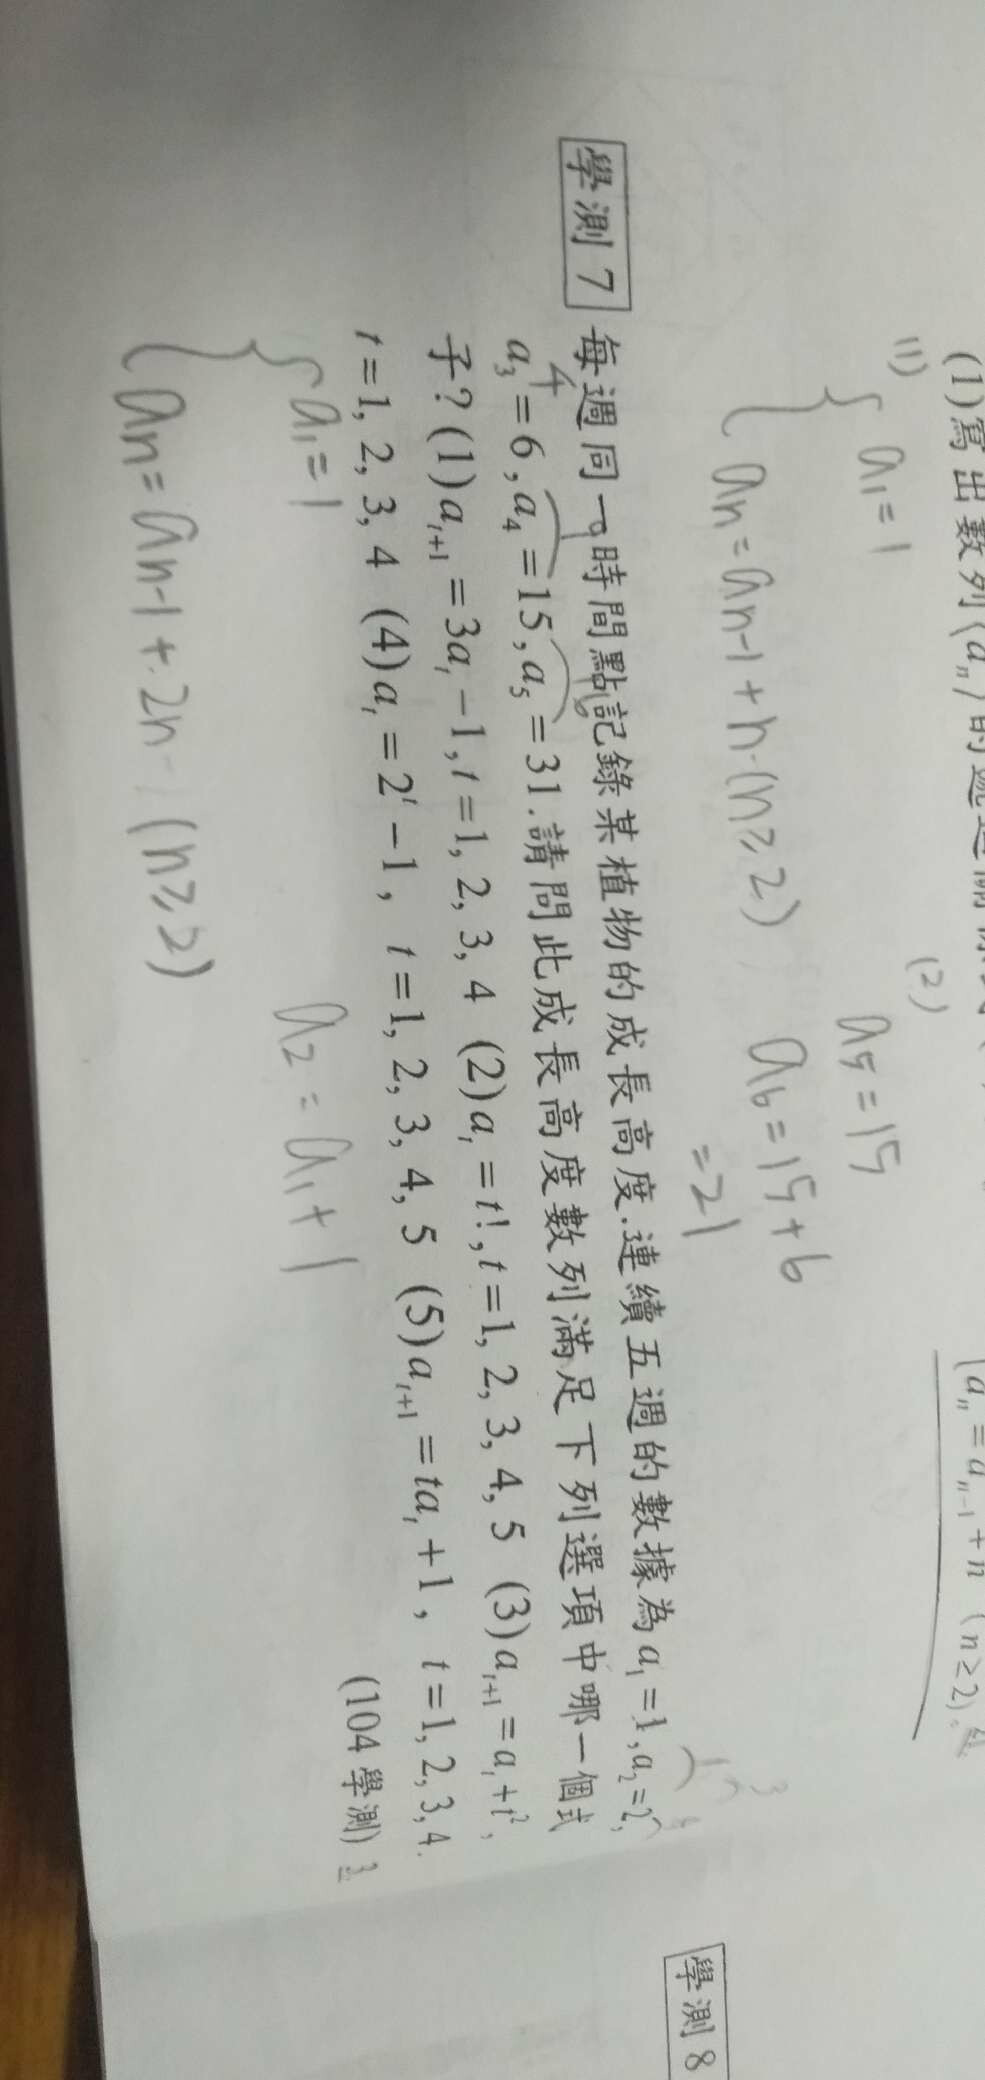 (1)寫出數列⟨aₙ⟩的遞迴關係式
aₙ=aₙ₋₁+n (n≥2)
(1)
(2)
{ a₁=1
aₙ=aₙ₋₁+n (n≥2)
a₅=15
a₆=15+6
=21
學測7
每週同一時間點記錄某植物的成長高度.連續五週的數據為a₁=1,a₂=2,
a₃=6,a₄=15,a₅=31.請問此成長高度數列滿足下列選項中哪一個式
子?(1)aₜ₊₁=3aₜ-1,t=1,2,3,4 (2)aₜ=t!,t=1,2,3,4,5 (3)aₜ₊₁=aₜ+t²,
t=1,2,3,4 (4)aₜ=2ᵗ-1, t=1,2,3,4,5 (5)aₜ₊₁=taₜ+1, t=1,2,3,4.
(104學測) 3
{ a₁=1
aₙ=aₙ₋₁+2n-1 (n≥2)
a₂=a₁+1
學測8